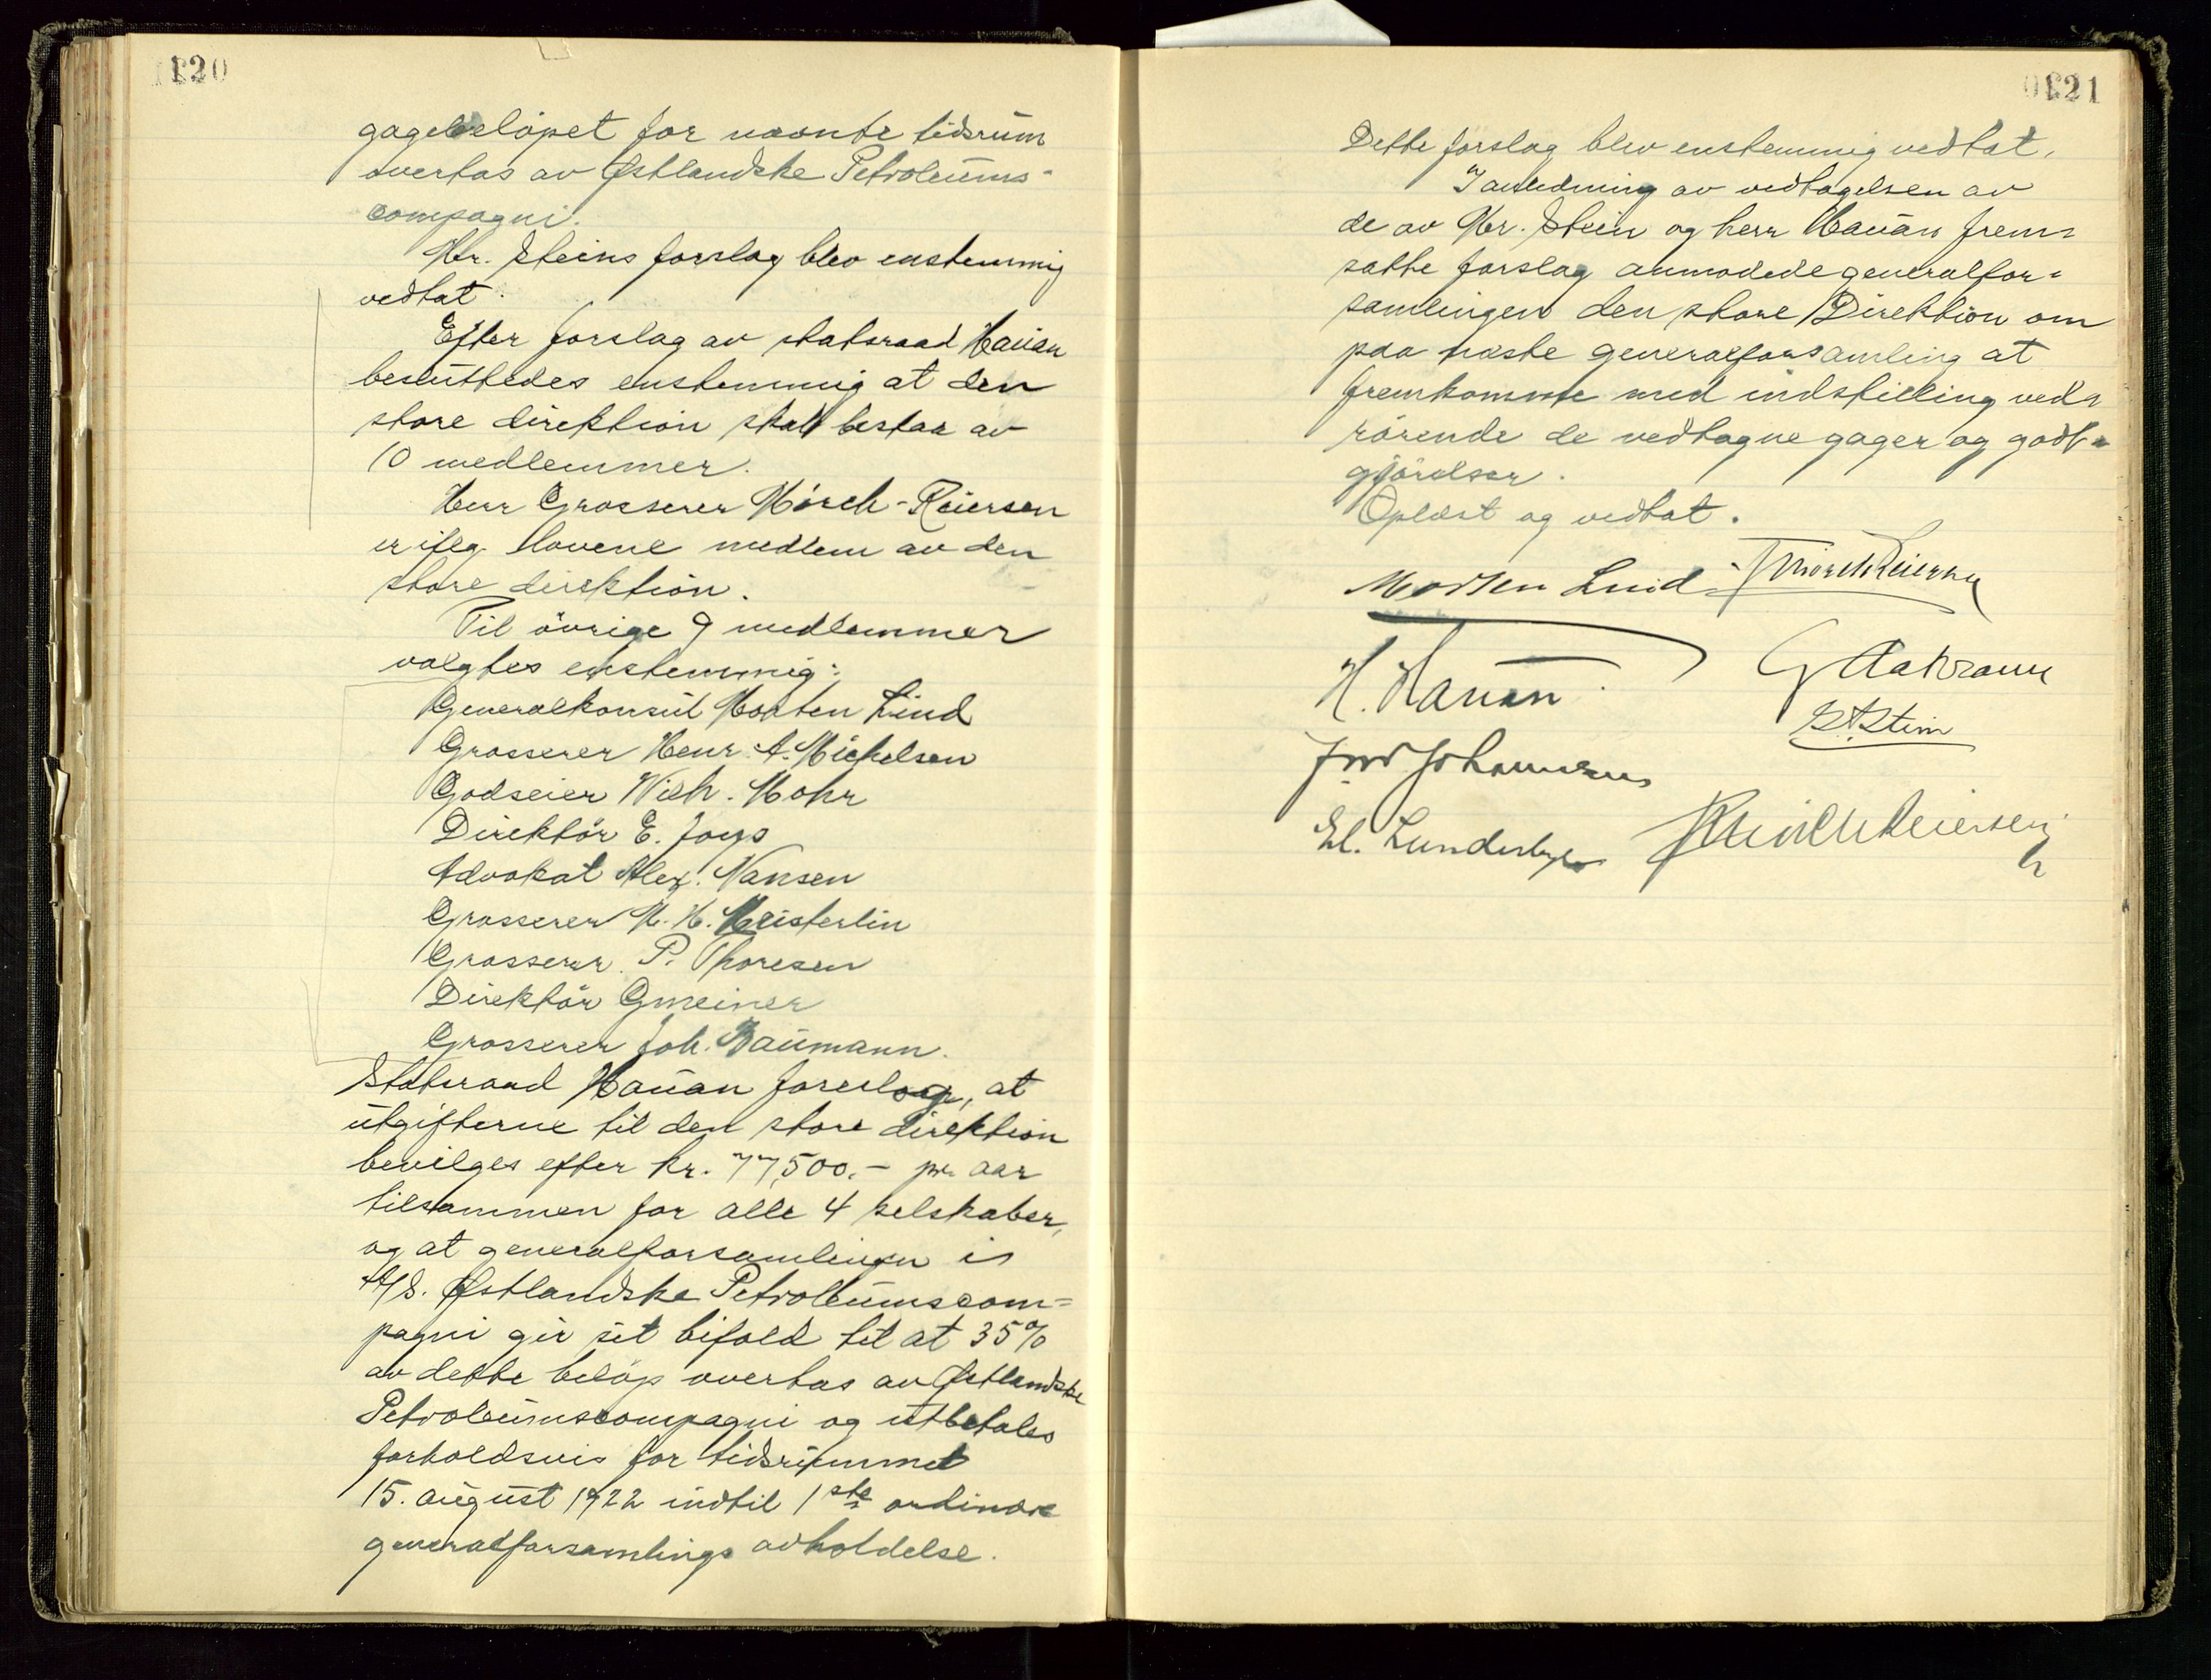 120
gagebeløpet for nævnte tidsrum
overtas av Østlandske Petroleums-
compagni.
Hr. Steins forslag blev enstemmig
vedtat.
Efter forslag av statsraad Hauan
besluttedes enstemmig at den
store direktion skal bestaa av
10 medlemmer.
Herr Grosserer Mörch-Reiersen
er iflg. lovene medlem av den
store direktion.
Til övrige 9 medlemmer
valgtes enstemmig:
Generalkonsul Morten Lind
Grosserer Henr. A. Michelsen
Godseier Wilh. Mohr
Direktör E. Joys
Advokat Alex. Nansen
Grosserer M. H. Meisterlin
Grosserer P. Thoresen
Direktör Gmeiner
Grosserer Joh. Baumann.
Statsraad Hauan foreslog, at
utgifterne til den store direktion
bevilges efter kr. 77,500.- pr. aar
tilsammen for alle 4 selskaber,
og at generalforsamlingen i
A/S. Østlandske Petroleumscom=
pagni gir sit bifald til at 35%
av dette beløp overtas av Østlandske
Petroleumscompagni og utbetales
forholdsvis for tidsrummet
15. august 1922 indtil 1ste ordinære
generalforsamlings avholdelse.
121
Dette forslag blev enstemmig vedtat.
I anledning av vedtagelsen av
de av Hr. Stein og herr Hauan frem=
satte forslag anmodede generalfor=
samlingen den store Direktion om
paa næste generalforsamling at
fremkomme med indstilling ved=
rörende de vedtagne gager og godt=
gjörelser.
Oplæst og vedtat.
Morten Lind Mörch Reiersen
H. Hauan
Stein
Johannesen
Mörch Reiersen